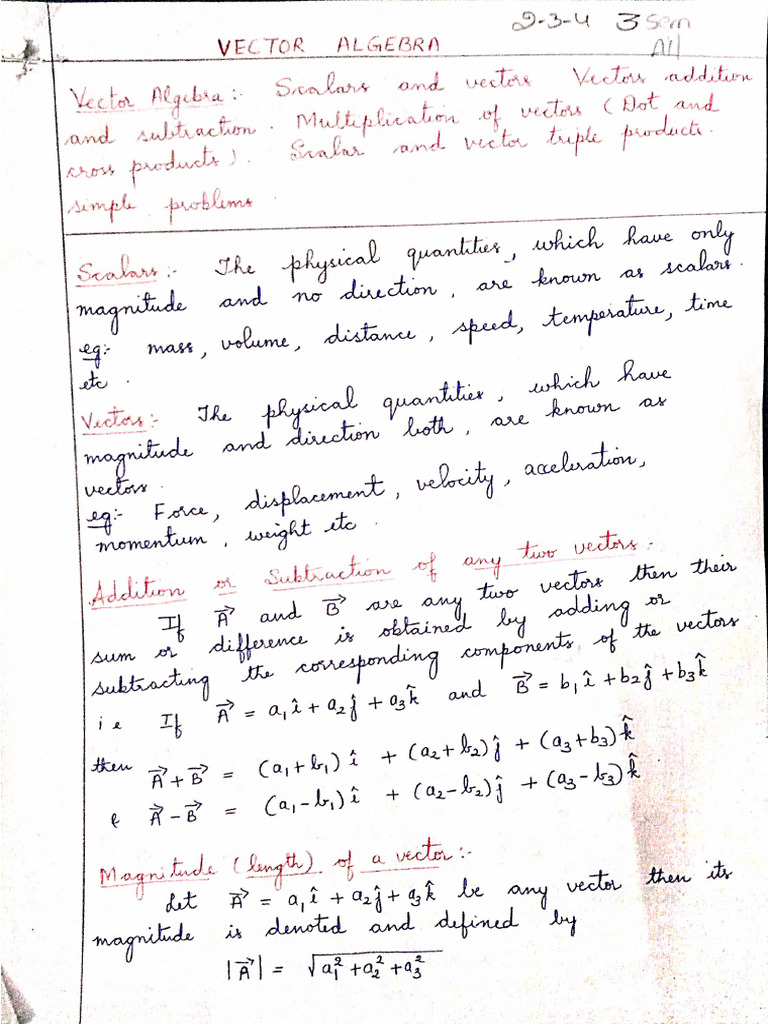 2-3-4 3 Sem
VECTOR ALGEBRA
All
Vector Algebra:- Scalars and vectors Vectors addition
and subtraction. Multiplication of vectors (Dot and
cross products). Scalar and vector triple products.
simple problems
Scalars:- The physical quantities, which have only
magnitude and no direction, are known as scalars.
eg:- mass, volume, distance, speed, temperature, time
etc.
Vectors:- The physical quantities, which have
magnitude and direction both, are known as
vectors.
eg:- Force, displacement, velocity, acceleration,
momentum, weight etc.
Addition or Subtraction of any two vectors:-
If A⃗ and B⃗ are any two vectors then their
sum or difference is obtained by adding or
subtracting the corresponding components of the vectors
i.e If A⃗ = a₁î + a₂ĵ + a₃k̂ and B⃗ = b₁î + b₂ĵ + b₃k̂
then A⃗ + B⃗ = (a₁+b₁)î + (a₂+b₂)ĵ + (a₃+b₃)k̂
& A⃗ - B⃗ = (a₁-b₁)î + (a₂-b₂)ĵ + (a₃-b₃)k̂.
Magnitude (length) of a vector:-
Let A⃗ = a₁î + a₂ĵ + a₃k̂ be any vector then its
magnitude is denoted and defined by
|A⃗| = √(a₁² + a₂² + a₃²)